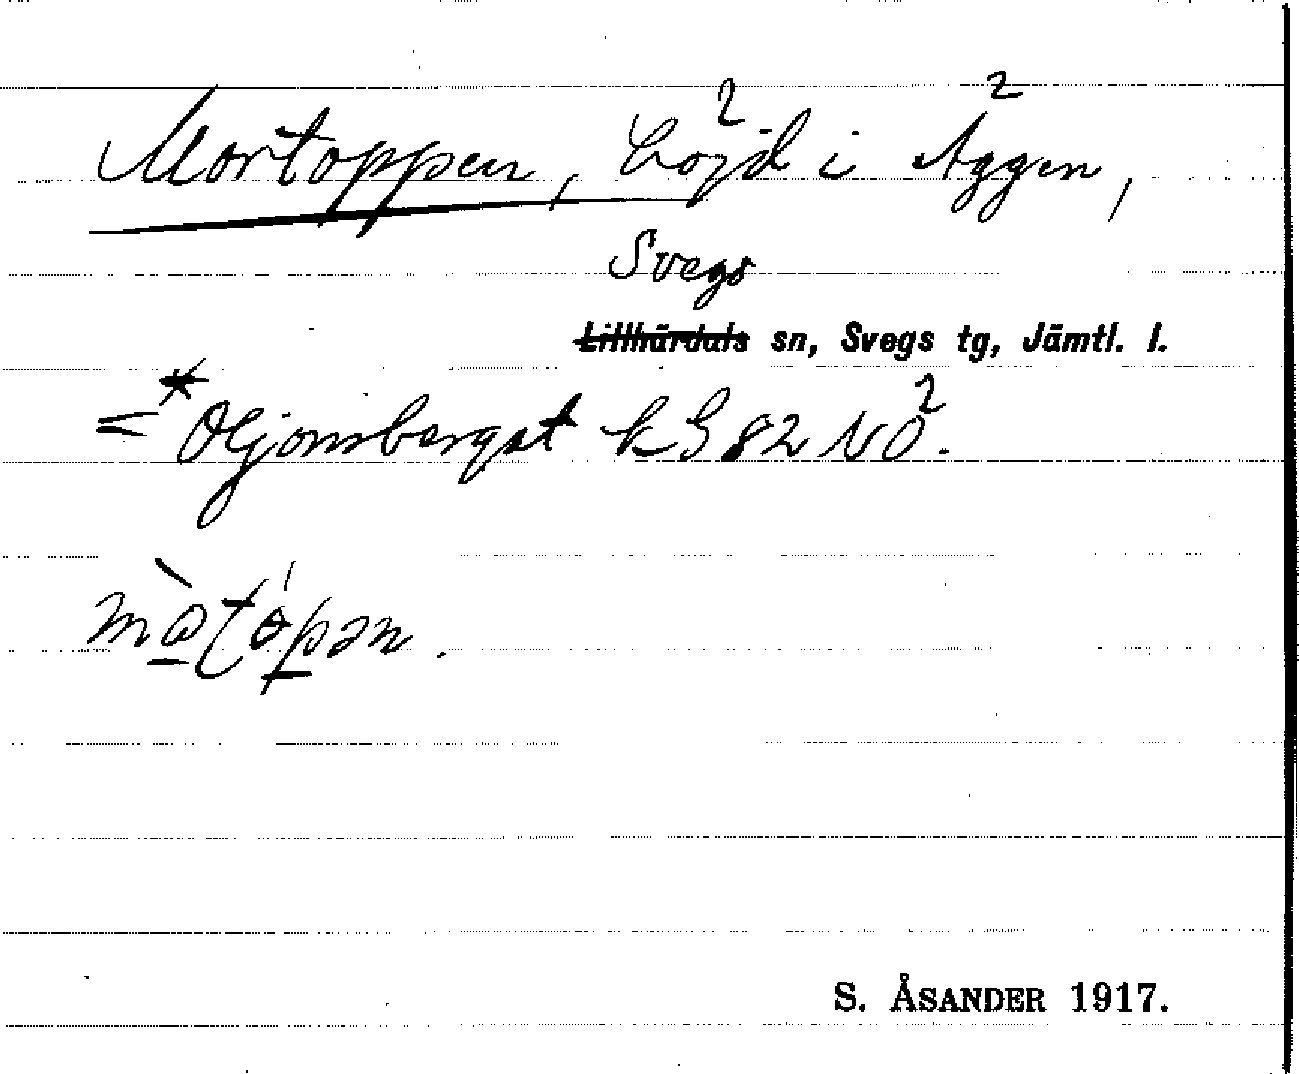 Mortoppen, höjd i Äggen,
Svegs
Lillhärdals sn, Svegs tg, Jämtl. l.
= *Oljonsberget k G 82 NÖ.
S. ÅSANDER 1917.